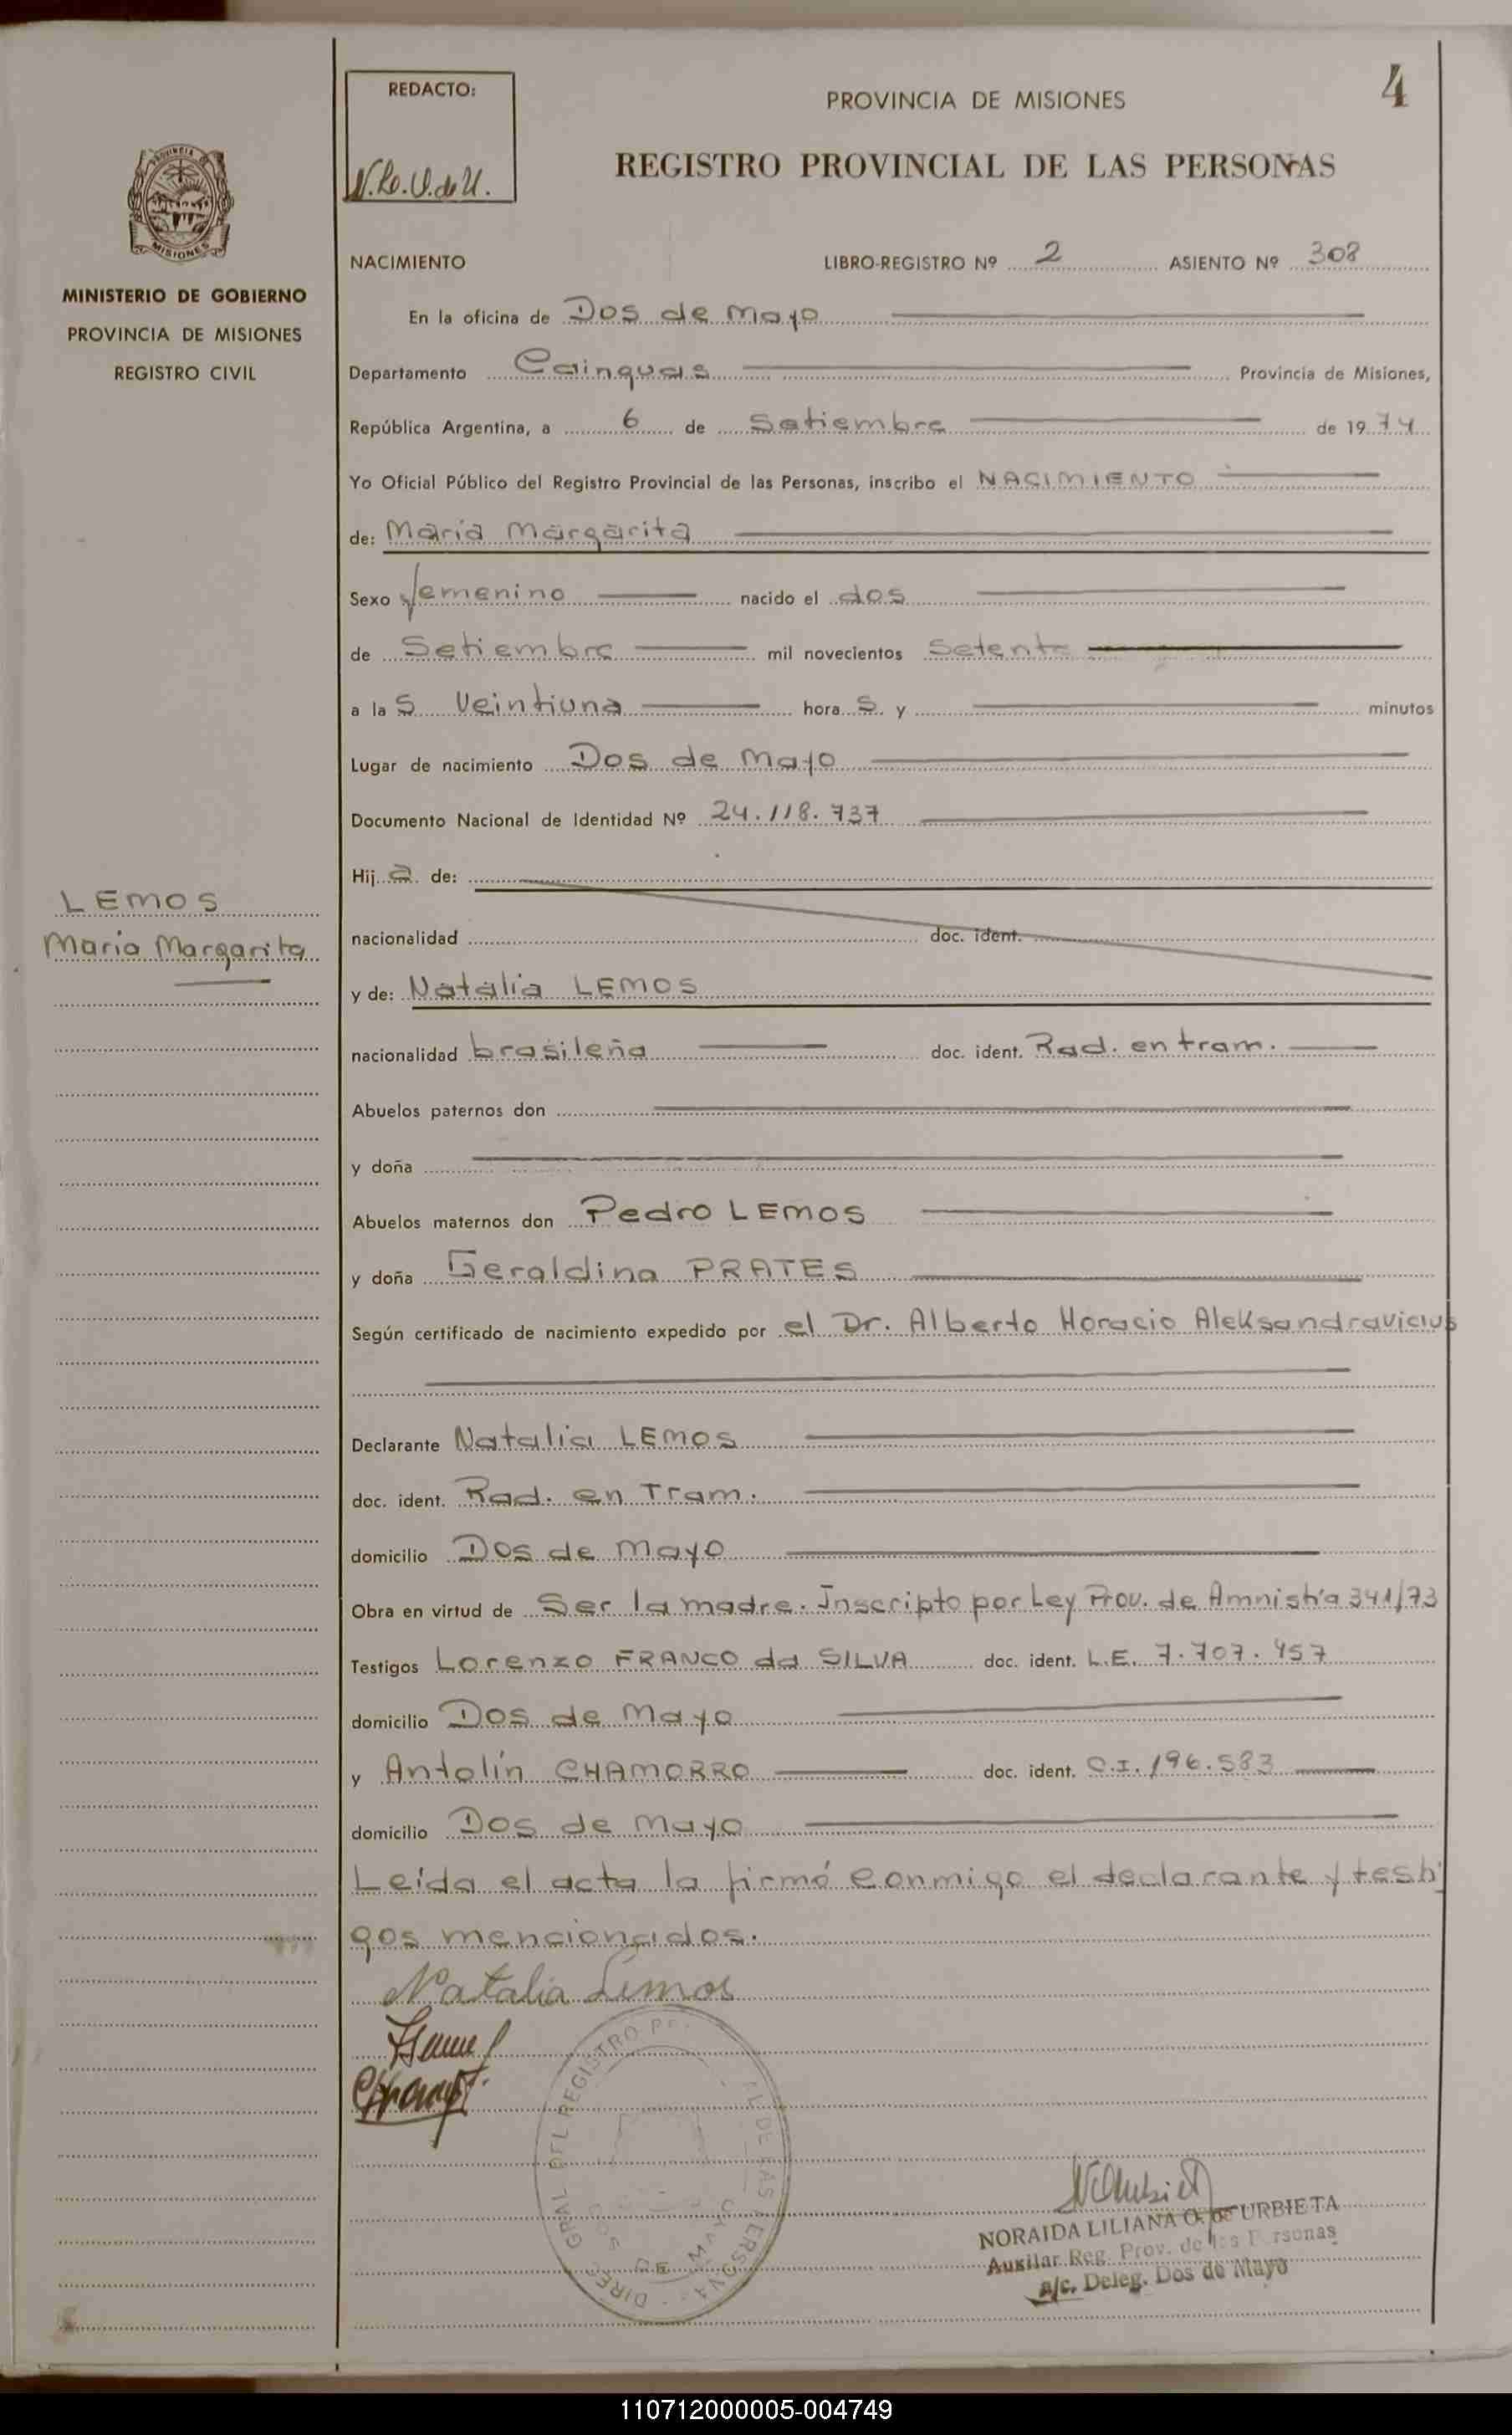 REDACTO:
N.Lo.O.deU.
PROVINCIA DE MISIONES
4
REGISTRO PROVINCIAL DE LAS PERSONAS
PROVINCIA DE
MISIONES
MINISTERIO DE GOBIERNO
PROVINCIA DE MISIONES
REGISTRO CIVIL
NACIMIENTO LIBRO-REGISTRO Nº 2 ASIENTO Nº 308
En la oficina de Dos de Mayo
Departamento Cainguas Provincia de Misiones,
República Argentina, a 6 de Setiembre de 1974
Yo Oficial Público del Registro Provincial de las Personas, inscribo el NACIMIENTO
de: María Margarita
Sexo femenino nacido el dos
de Setiembre mil novecientos Setenta
a las Veintiuna horas y minutos
Lugar de nacimiento Dos de Mayo
Documento Nacional de Identidad Nº 24.118.737
Hija de:
LEMOS
Maria Margarita
nacionalidad doc. ident.
y de: Natalia LEMOS
nacionalidad brasileña doc. ident. Rad. en tram.
Abuelos paternos don
y doña
Abuelos maternos don Pedro LEMOS
y doña Geraldina PRATES
Según certificado de nacimiento expedido por el Dr. Alberto Horacio Aleksandravicius
Declarante Natalia LEMOS
doc. ident. Rad. en Tram.
domicilio Dos de Mayo
Obra en virtud de Ser la madre. Inscripto por Ley Prov. de Amnistía 341/73
Testigos Lorenzo FRANCO da SILVA doc. ident. L.E. 7.707.457
domicilio Dos de Mayo
y Antolín CHAMORRO doc. ident. C.I. 196.583
domicilio Dos de Mayo
Leída el acta la firmó conmigo el declarante y testi
gos mencionados.
Natalia Lemos
NORAIDA LILIANA O. de URBIETA
Auxiliar Reg. Prov. de las Personas
a/c. Deleg. Dos de Mayo
110712000005-004749